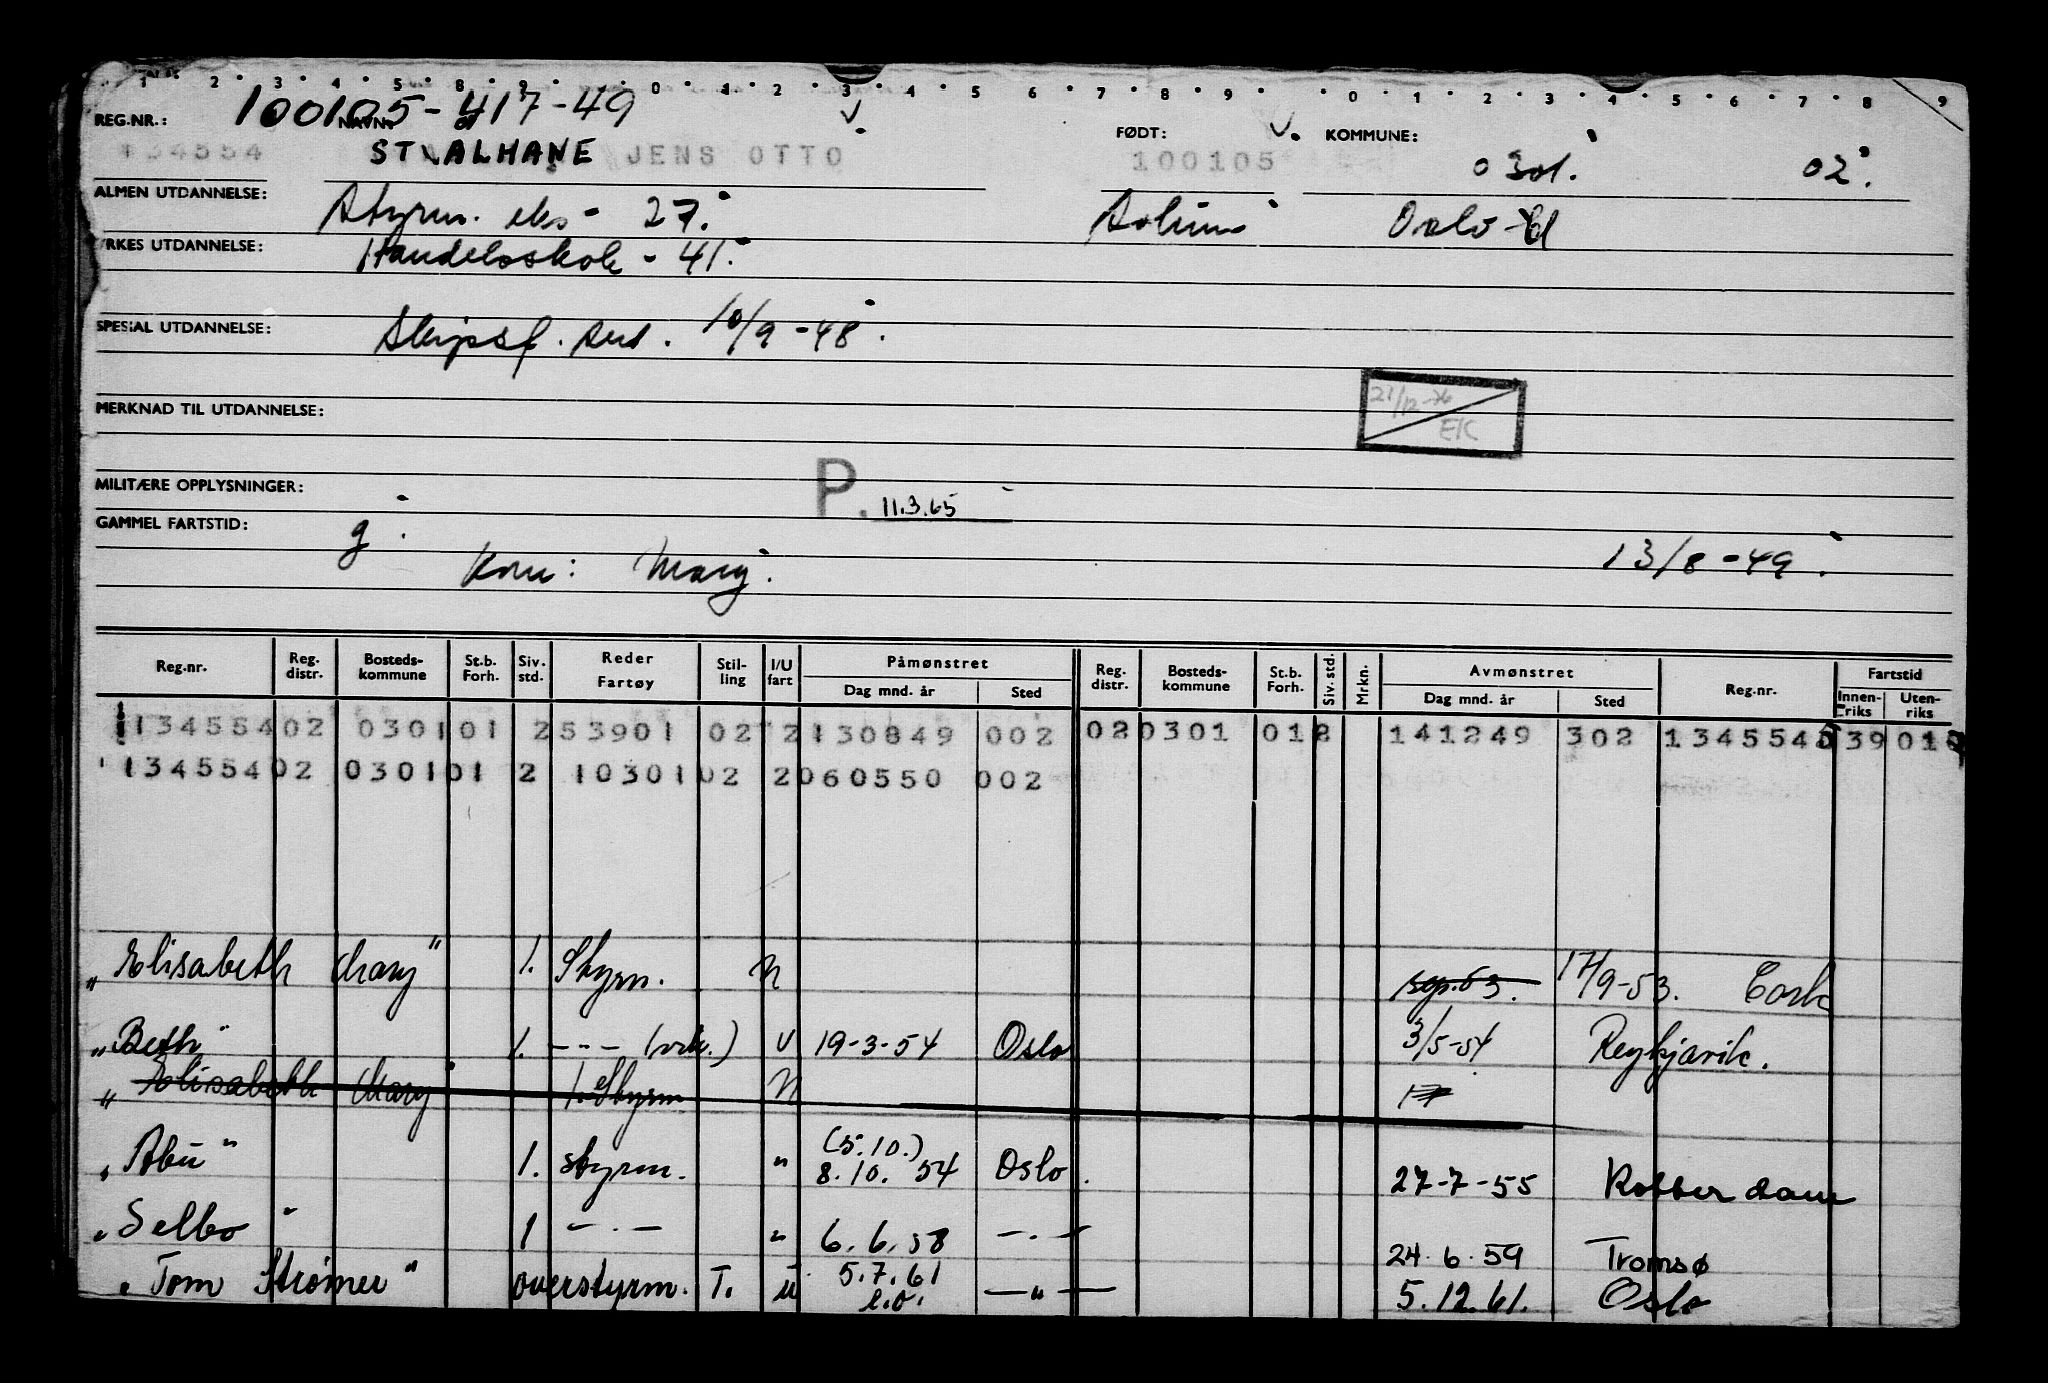 1 2 3 4 5 8 9 0 1 2 3 4 5 6 7 8 9 0 1 2 3 4 5 6 7 8 9
REG.NR.: 100105-41749 NAVN: FØDT: KOMMUNE:
134554 STAALHANE JENS OTTO 100105 0301. 02.
ALMEN UTDANNELSE: Styrm. eks - 27. Oslo
YRKES UTDANNELSE: Handelsskole - 41.
SPESIAL UTDANNELSE: Skipsf. 10/9-48.
21/12-76
EK
MERKNAD TIL UTDANNELSE:
MILITÆRE OPPLYSNINGER: P. 11.3.65
GAMMEL FARTSTID: g.
Kone: Mary. 13/8-49.
Reg.nr. Reg. distr. Bosteds-kommune St.b. Forh. Siv. std. Reder Fartøy Stil-ling I/U fart Påmønstret Dag mnd. år Sted Reg. distr. Bosteds-kommune St.b. Forh. Siv. std. Mrkn. Avmønstret Dag mnd. år Sted Reg.nr. Fartstid Innen-riks Uten-riks
134554 02 0301 01 2 53901 02 2 130849 002 02 0301 01 2 141249 302 134554 39 01
134554 02 0301 01 2 10301 02 2 060550 002
"Elisabeth Mary" 1. Styrm. N sep. 53. 17/9-53. Cork
"Beth" 1. - - - U 19-3-54 Oslo 3/5-54 Reykjavik.
" Elisabeth Mary 1. Styrm N 17
(5.10.)
"Abu" 1. styrm. " 8.10. 54 Oslo. 27-7-55 Rotterdam
"Selbo" 1 - . - " 6.6.58 - . - 24.6.59 Tromsø
"Tom Strømer" overstyrm. T. u 5.7.61 - " - 5.12.61. Oslo
e.o.